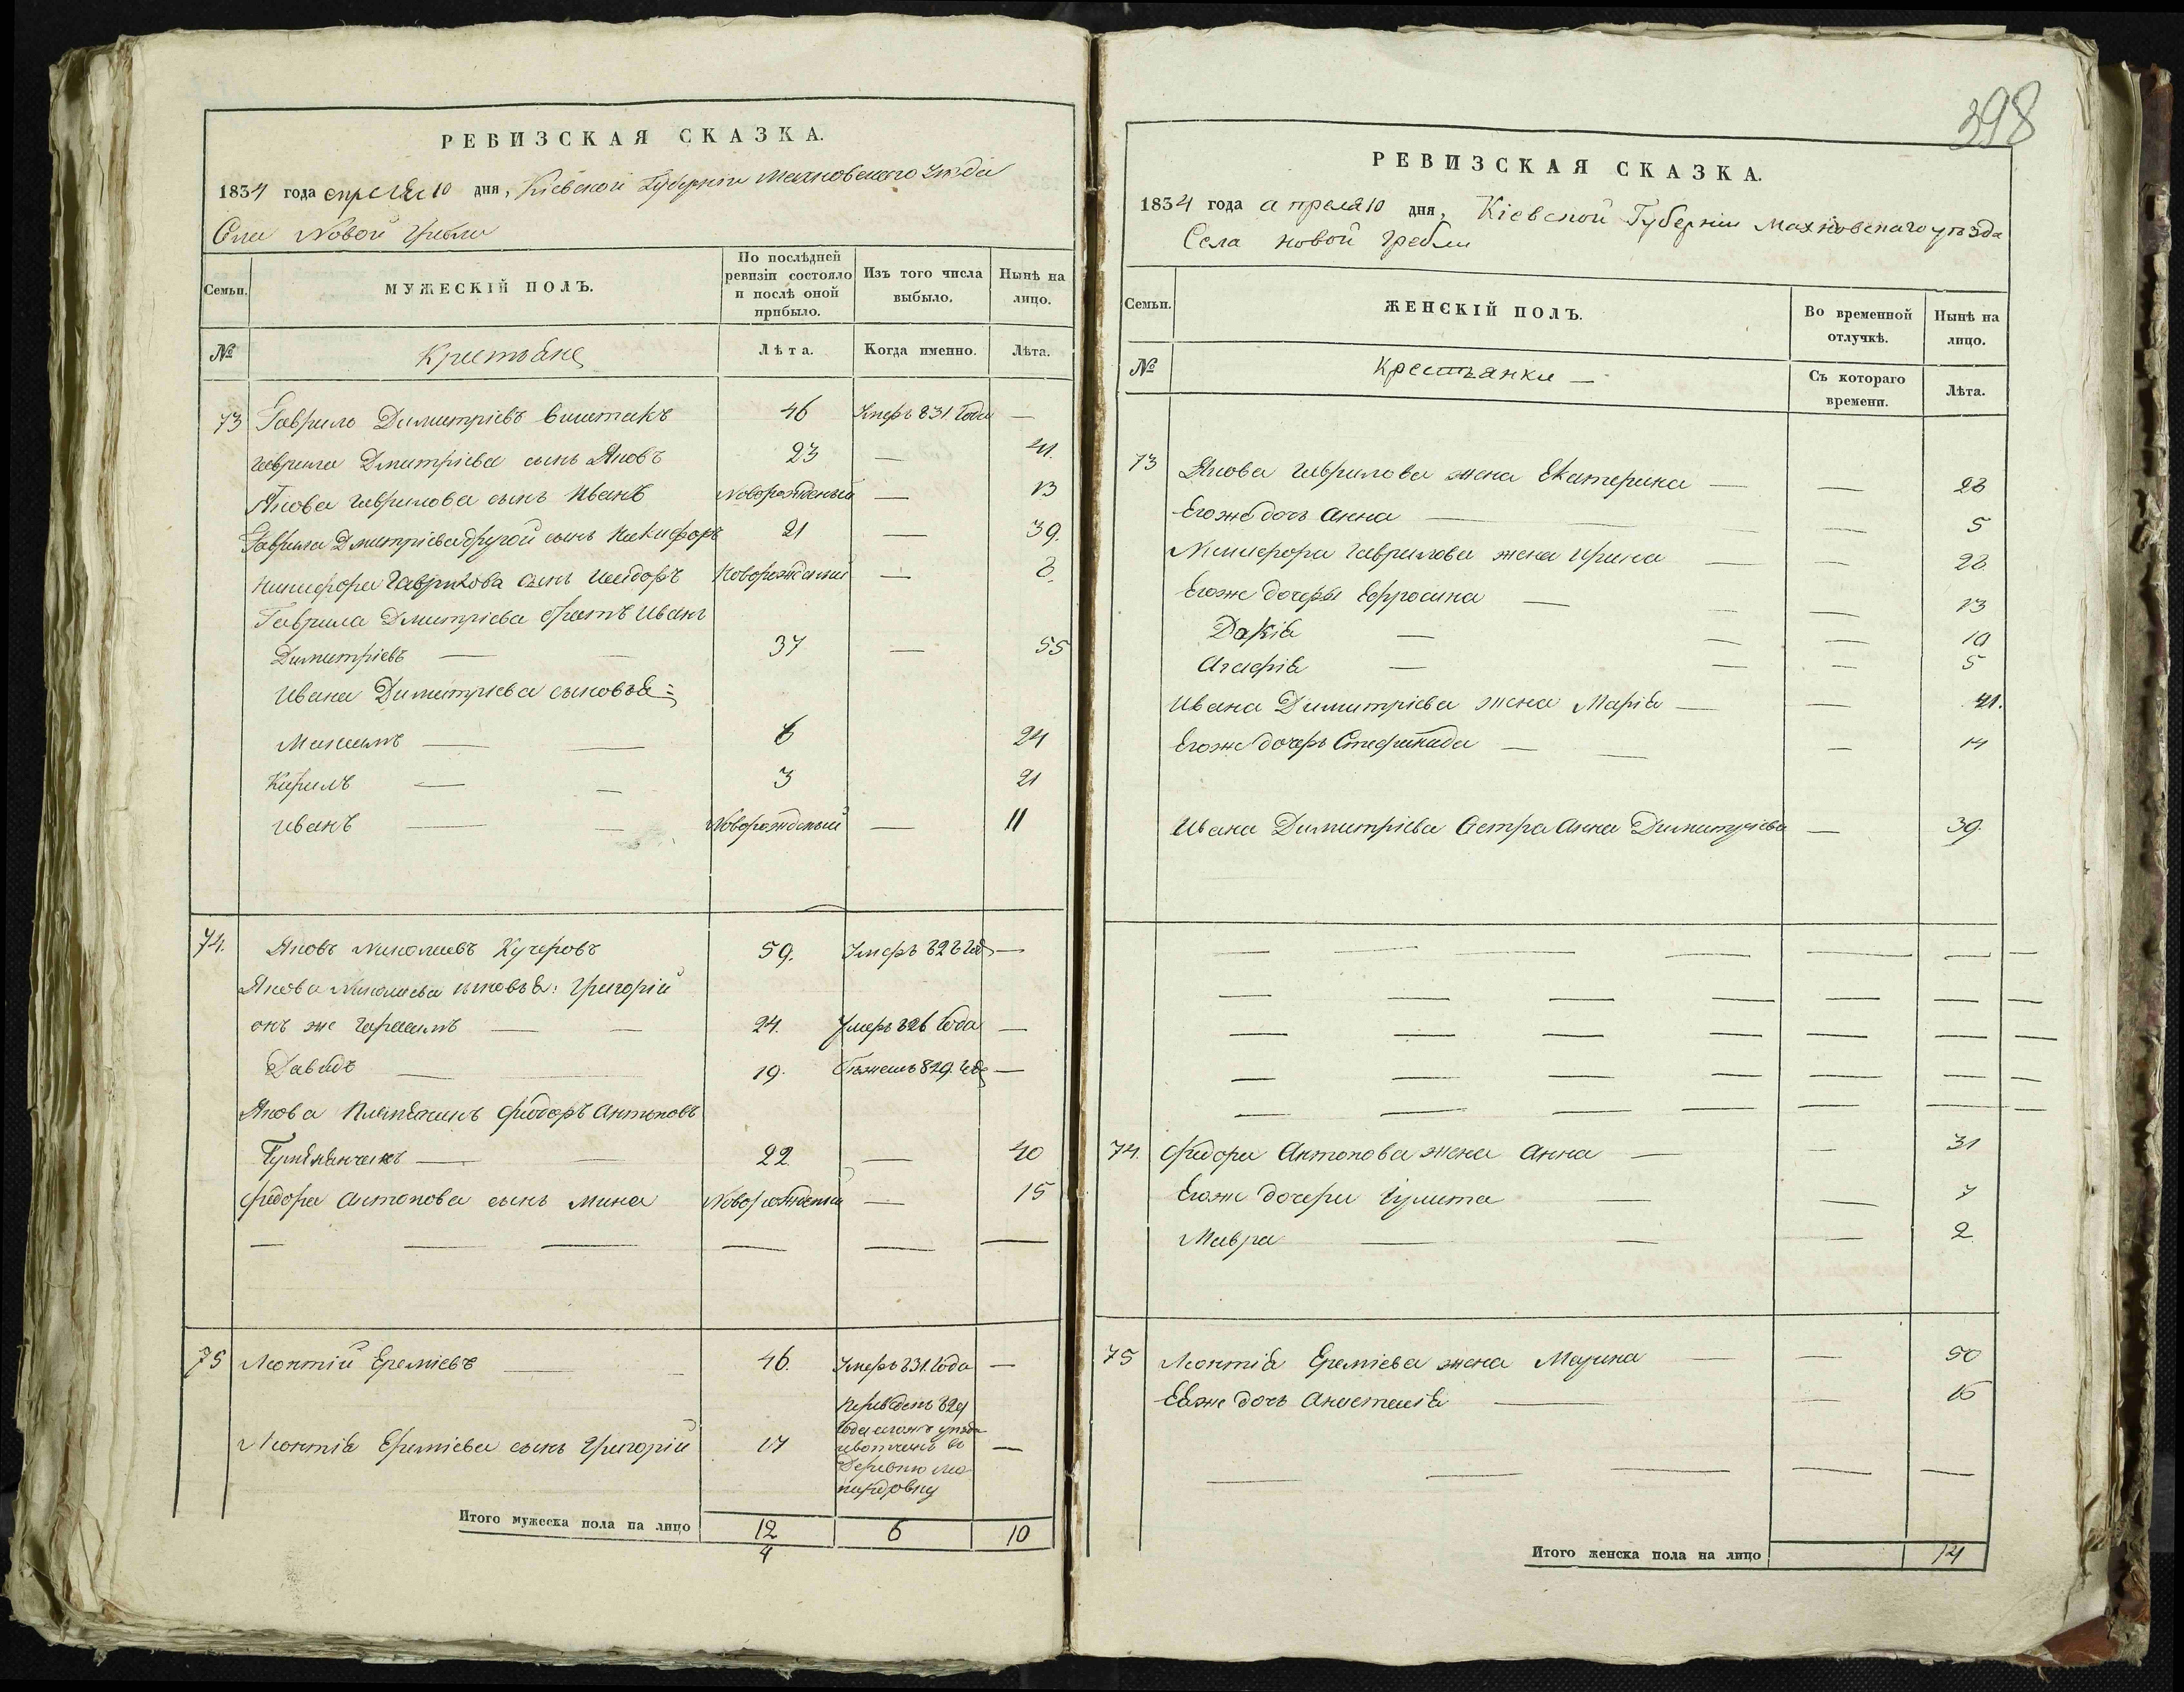 РЕВИЗСКАЯ СКАЗКА.
1834 года апреля 10 дня, Кіевской Губерніи Махновского уезда
Села Новой Гребли
Семьи.
МУЖЕСКІЙ ПОЛЪ.
По послѣдней ревизіи состояло и послѣ оной прибыло.
Изъ того числа выбыло.
Нынѣ на лицо.
№
Крестьяне
Лѣта.
Когда именно.
Лѣта.
73 Гаврило Димитріевъ 46 Умеръ 831 Года —
Гаврила Дмитріева сынъ Яковъ 23 — 41.
Якова Гаврилова сынъ Иванъ Новорожденый — 13
Гаврила Дмитріева другой сынъ Никифоръ 21 — 39.
Никифора Гаврилова сынъ Исидоръ Новорожденый — 8.
Гаврила Дмитріева братъ Иванъ
Димитріевъ — — 37 — 55
Ивана Димитріева сыновья:
Максимъ — — 6 24
Кирилъ — — 3 21
Иванъ — — Новорожденый — 11
74. Яковъ Николаевъ Кучеровъ 59. Умеръ 828 год —
Якова Николаева сыновья: Григорій
онъ же Герасимъ — — 24. Умеръ 826 года —
Давидъ — — 19. Бежалъ 829 год —
Якова Племяникъ Фѣодоръ Антоновъ
— — 22. — 40
Фѣдора Антонова сынъ Мина Новорожденый — 15
— — — — — —
75 Леонтій Ереміевъ — — 46. Умеръ 831. Года —
Переведенъ 829
Года
Деревню
Леонтія Ереміева сынъ Григорій 17 —
Итого мужеска пола на лицо 12 6 10
4
398
РЕВИЗСКАЯ СКАЗКА.
1834 года апреля 10 дня, Кіевской Губерніи Махновскаго уѣзда
Села новой гребли
Семьи.
ЖЕНСКІЙ ПОЛЪ.
Во временной отлучкѣ.
Нынѣ на лицо.
№
Крестьянки —
Съ котораго времени.
Лѣта.
73 Якова Гаврилова жена Екатерина — — 28
Егоже дочь Анна — — — 5
Никифора Гаврилова жена Ирина — — 28.
Егоже дочеры Ефросина — — — 13
Дакія — — — 10
Агафія — — — 5
Ивана Димитріева жена Марія — — 41.
Егоже дочерь Стефанида — — — 14
Ивана Димитріева Сестра Анна Димитріева — 39.
— — — — — — —
— — — — — — —
— — — — — — —
— — — — — — —
— — — — — — —
74. Фѣдора Антонова жена Анна — — 31
Егоже дочери Іулита — — 7
Мавра — — — 2.
75 Леонтія Ереміева жена Марина — — 50
Еяже дочь Анастасія — — 16
— — — — —
Итого женска пола на лицо 14